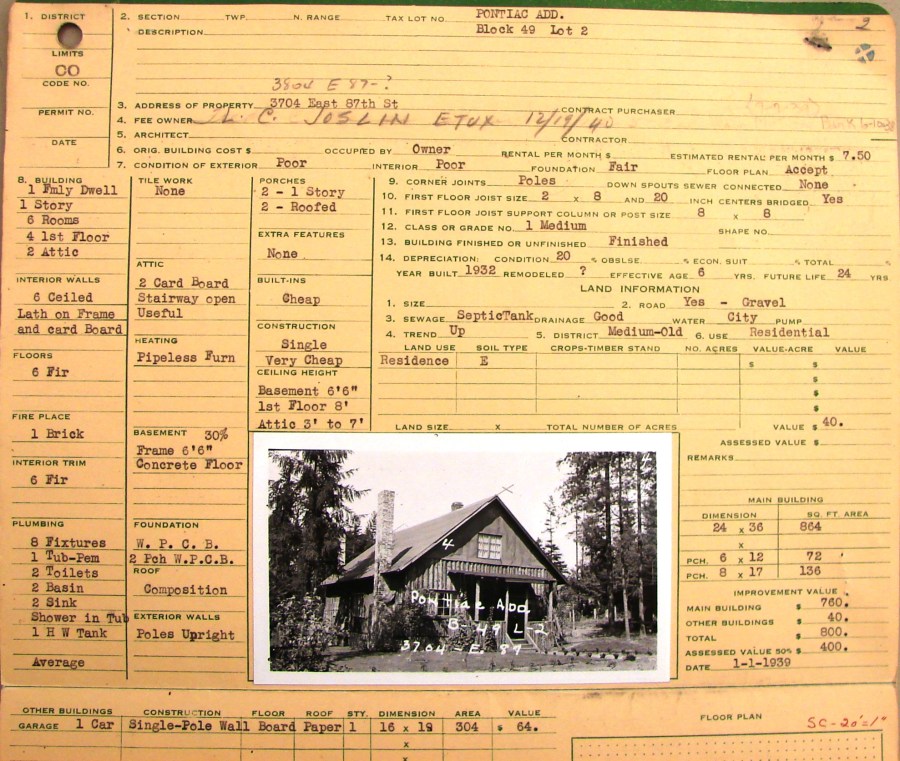 1. DISTRICT
LIMITS
CO
CODE NO.
PERMIT NO.
DATE
2. SECTION TWP. N. RANGE TAX LOT NO. PONTIAC ADD.
DESCRIPTION Block 49 Lot 2
2
3804 E 87-?
3. ADDRESS OF PROPERTY 3704 East 87th St CONTRACT PURCHASER
4. FEE OWNER L. C. JOSLIN ETUX 12/19/40
5. ARCHITECT CONTRACTOR
6. ORIG. BUILDING COST $ OCCUPIED BY Owner RENTAL PER MONTH $ ESTIMATED RENTAL PER MONTH $ 7.50
7. CONDITION OF EXTERIOR Poor INTERIOR Poor FOUNDATION Fair FLOOR PLAN Accept
8. BUILDING
1 Fmly Dwell
1 Story
6 Rooms
4 1st Floor
2 Attic
INTERIOR WALLS
6 Ceiled
Lath on Frame
and card Board
FLOORS
6 Fir
FIRE PLACE
1 Brick
INTERIOR TRIM
6 Fir
PLUMBING
8 Fixtures
1 Tub-Pem
2 Toilets
2 Basin
2 Sink
Shower in Tub
1 H W Tank
Average
TILE WORK
None
ATTIC
2 Card Board
Stairway open
Useful
HEATING
Pipeless Furn
BASEMENT 30%
Frame 6'6"
Concrete Floor
FOUNDATION
W. P. C. B.
2 Pch W.P.C.B.
ROOF
Composition
EXTERIOR WALLS
Poles Upright
PORCHES
2 - 1 Story
2 - Roofed
EXTRA FEATURES
None
BUILT-INS
Cheap
CONSTRUCTION
Single
Very Cheap
CEILING HEIGHT
Basement 6'6"
1st Floor 8'
Attic 3' to 7'
9. CORNER JOINTS Poles DOWN SPOUTS SEWER CONNECTED None
10. FIRST FLOOR JOIST SIZE 2 x 8 AND 20 INCH CENTERS BRIDGED Yes
11. FIRST FLOOR JOIST SUPPORT COLUMN OR POST SIZE 8 x 8
12. CLASS OR GRADE NO. 1 Medium SHAPE NO.
13. BUILDING FINISHED OR UNFINISHED Finished
14. DEPRECIATION: CONDITION 20 % OBSLSE. % ECON. SUIT % TOTAL %
YEAR BUILT 1932 REMODELED ? EFFECTIVE AGE 6 YRS. FUTURE LIFE 24 YRS
LAND INFORMATION
1. SIZE 2. ROAD Yes - Gravel
3. SEWAGE SepticTank DRAINAGE Good WATER City PUMP
4. TREND Up 5. DISTRICT Medium-Old 6. USE Residential
LAND USE SOIL TYPE CROPS-TIMBER STAND NO. ACRES VALUE-ACRE VALUE
Residence E $ $
$
$
$
LAND SIZE x TOTAL NUMBER OF ACRES VALUE $ 40.
ASSESSED VALUE $
REMARKS
MAIN BUILDING
DIMENSION SQ. FT. AREA
24 x 36 864
x
PCH. 6 x 12 72
PCH. 8 x 17 136
IMPROVEMENT VALUE
MAIN BUILDING $ 760.
OTHER BUILDINGS $ 40.
TOTAL $ 800.
ASSESSED VALUE 50% $ 400.
DATE 1-1-1939
4
Pontiac Add
B-49 L 2
3704-E. 87
OTHER BUILDINGS CONSTRUCTION FLOOR ROOF STY. DIMENSION AREA VALUE
GARAGE 1 Car Single-Pole Wall Board Paper 1 16 x 19 304 $ 64.
x
x
FLOOR PLAN
SC-20'=1"